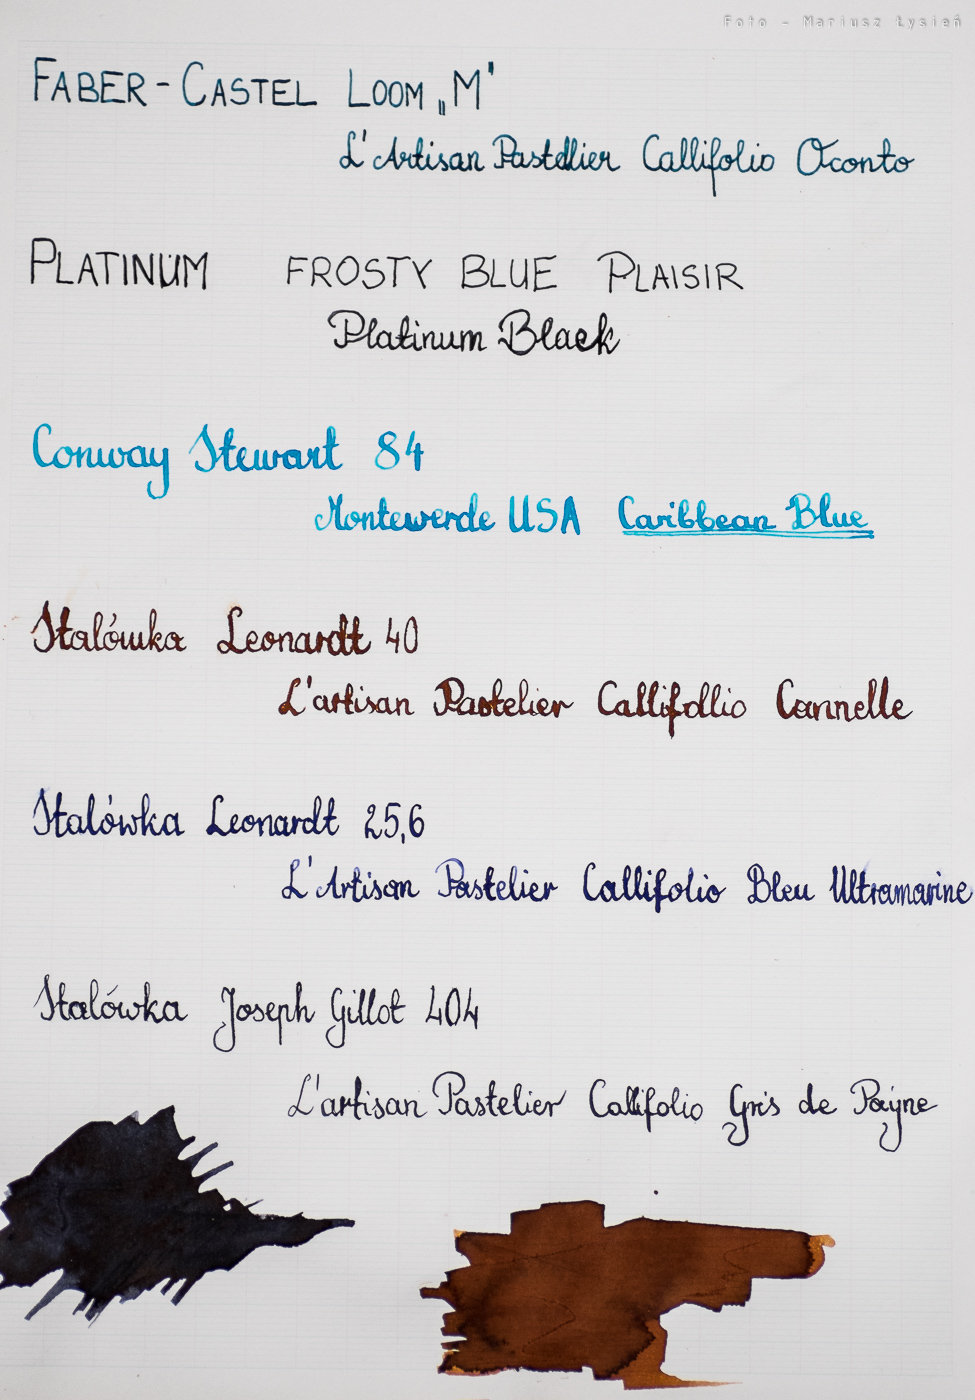 Foto - Mariusz Łysień
FABER-CASTEL LOOM „M"
L'Artisan Pastellier Callifolio Oconto
PLATINUM FROSTY BLUE PLAISIR
Platinum Black
Conway Stewart 84
Montewerde USA Caribbean Blue
Stalówka Leonardt 40
L'artisan Pastelier Callifollio Cannelle
Stalówka Leonardt 25,6
L'Artisan Pastelier Callifolio Bleu Ultramarine
Stalówka Joseph Gillot 404
L'artisan Pastelier Callifolio Gris de Payne